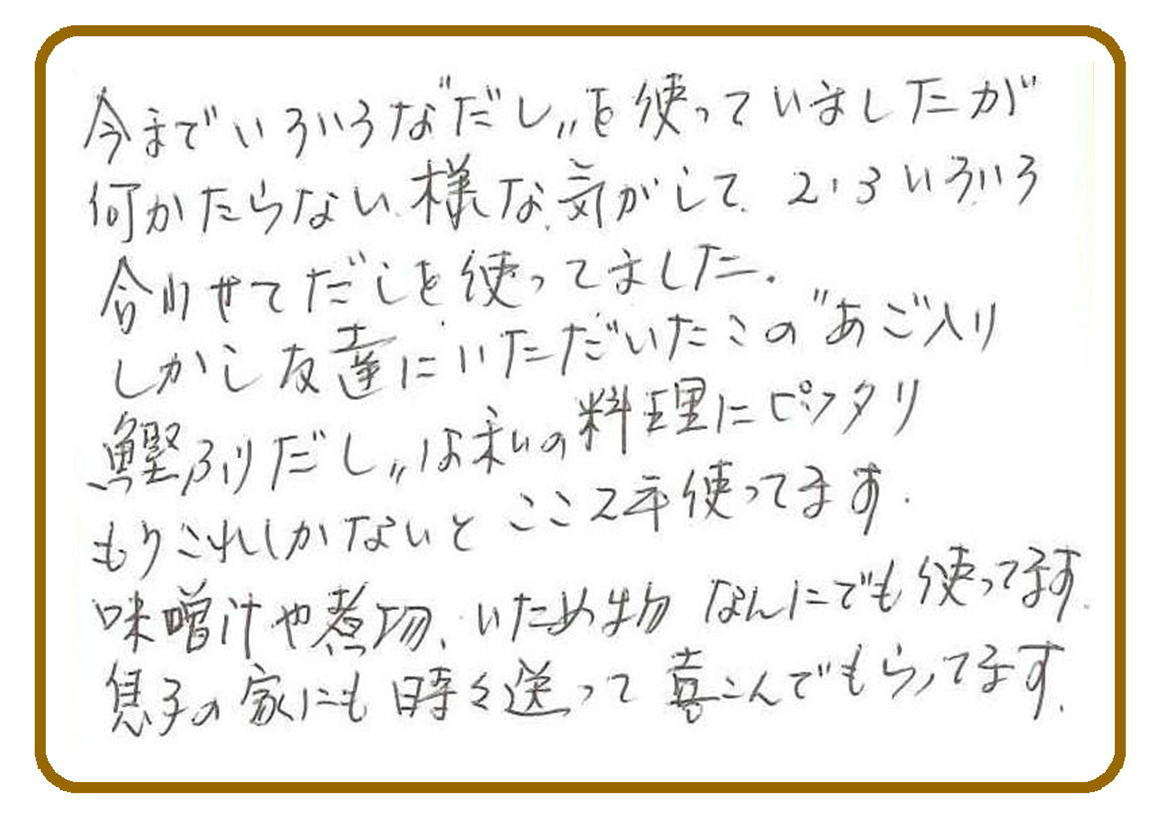 今までいろいろな"だし〃を使っていましたが
何かたらない様な気がして、2・3いろいろ
合わせてだしを使ってました.
しかし友達にいただいたこの"あご入り
鰹ふりだし〃は私の料理にピッタリ
もうこれしかないと ここ2年使ってます.
味噌汁や煮物、いため物 なんにでも使ってます.
息子の家にも時々送って 喜こんでもらってます.